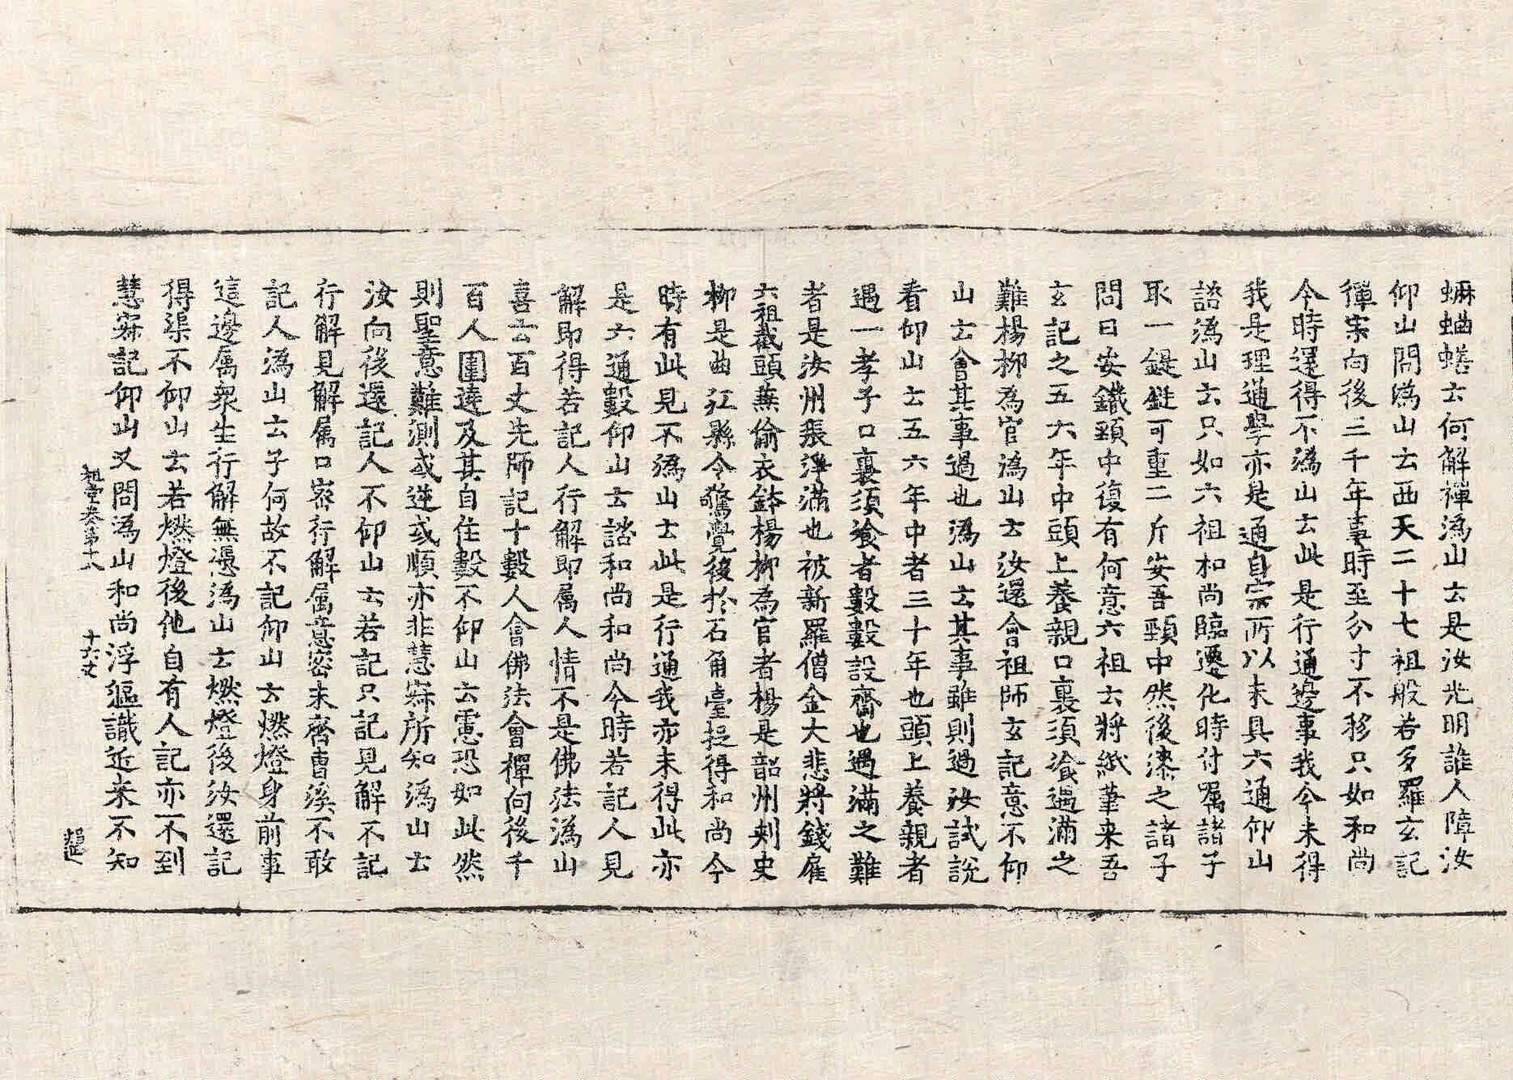 蝋蝋蟮云何解禪溈山云是汝光明誰人障汝
仰山問溈山云西天二十七祖般若多羅玄記
禪宗向後三千年事時至分寸不移只如和尚
今時還得不溈山云此是行通邊事我今未得
我是理通學亦是通自宗所以未具六通仰山
諮溈山云只如六祖和尚臨遷化時付囑諸子
取一鋌鋌可重二斤安吾頸中然後漆之諸子
問曰安鐵頸中復有何意六祖云將紙筆来吾
玄記之五六年中頭上養親口裏須飡遇滿之
難楊柳為官溈山云汝還會祖師玄記意不仰
山云會其事過也溈山云其事雖則過汝試說
看仰山云五六年中者三十年也頭上養親者
遇一孝子口裏須飡者數數設齋也遇滿之難
者是汝州張淨滿也被新羅僧金大悲將錢雇
六祖截頭兼偷衣鉢楊柳為官者楊是韶州刺史
柳是曲江縣令驚覺後於石角臺捉得和尚今
時有此見不溈山云此是行通我亦未得此亦
是六通數仰山云諮和尚和尚今時若記人見
解即得若記人行解即属人情不是佛法溈山
喜云百丈先師記十數人會佛法會禪向後千
百人圍遶及其自住數不仰山云慮恐如此然
則聖意難測或逆或順亦非慧寂所知溈山云
汝向後還記人不仰山云若記只記見解不記
行解見解属口密行解属意密未齊曹溪不敢
記人溈山云子何故不記仰山云燃燈身前事
這邊属衆生行解無憑溈山云燃燈後汝還記
得渠不仰山云若燃燈後他自有人記亦不到
慧寂記仰山又問溈山和尚浮漚識近来不知
祖堂卷第十八 十六丈